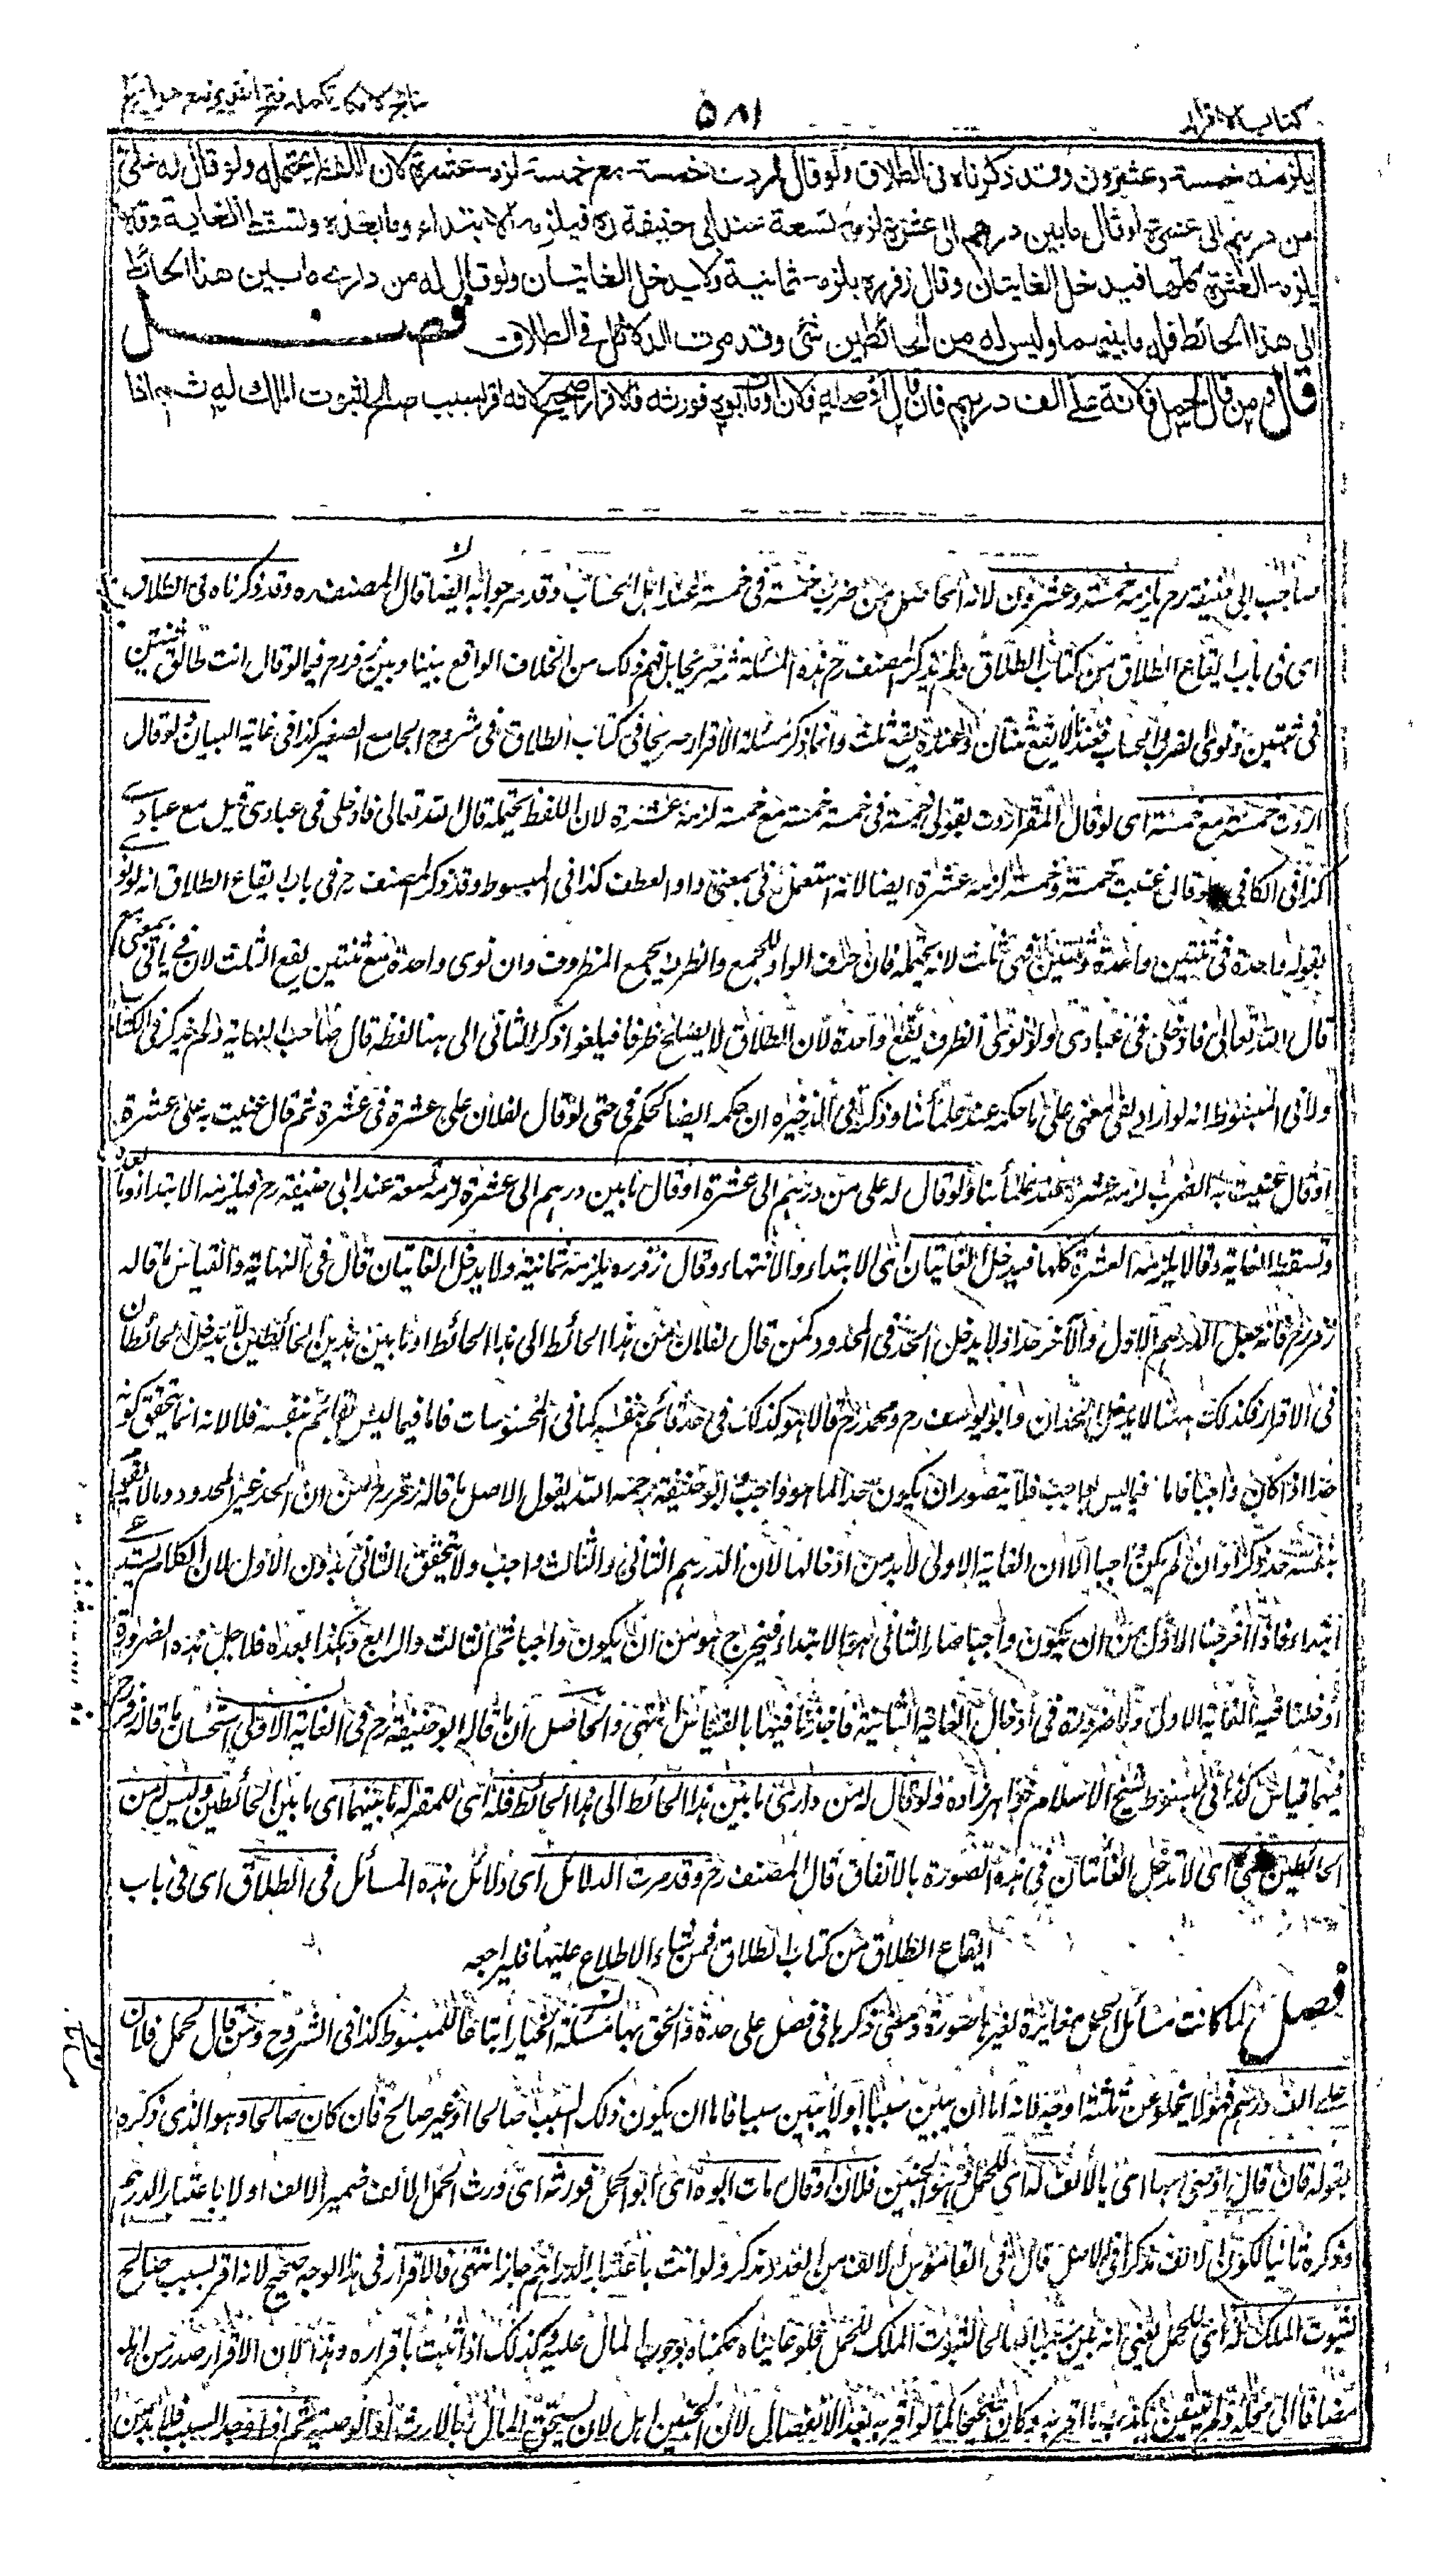 كتاب الاقرار
٥٨١
نتائج الافكار تكمله فتح القدير مع هدايه ج
يلزمه خمسة وعشرون وقد ذكرناه فى الطلاق ولو قال اردت خمسة مع خمسة لزمه عشرة لان اللفظ يحتمله ولو قال له على
من درهم الى عشرة او قال ما بين درهم الى عشرة لزمه تسعة عند ابى حنيفة ره فيلزمه الابتداء وما بعده وتسقط الغاية وقالا
يلزمه العشرة كلها فيدخل الغايتان وقال زفر ره يلزمه ثمانية ولا يدخل الغايتان ولو قال له من دارى ما بين هذا الحائط
الى هذا الحائط فله ما بينهما وليس له من الحائطين شئ وقد مرت الدلائل فى الطلاق فصل
قال ومن قال لحمل فلانة على الف درهم فان قال اوصى له فلان او مات ابوه فورثه فالاقرار صحيح لانه اقر بسبب صالح لثبوت الملك له ثم اذا
صاحب ابى حنيفة رح يلزمه خمسة وعشرون لانه الحاصل من ضرب خمسة فى خمسة عند اهل الحساب وقد مر جوابه ايضا قال المصنف ره وقد ذكرناه فى الطلاق
اى فى باب ايقاع الطلاق من كتاب الطلاق ولم يذكر المصنف رح هذه المسئلة ثمه صريحا بل فهم ذلك من الخلاف الواقع بيننا وبين زفر رح فيما لو قال انت طالق ثنتين
فى ثنتين ونوى الضرب والحساب فعندنا يقع ثنتان وعنده يقع ثلث وانما ذكر مسئلة الاقرار صريحا فى كتاب الطلاق فى شروح الجامع الصغير كذا فى غاية البيان لو قال
اردت خمسة مع خمسة اى لو قال المقر اردت بقولى خمسة فى خمسة خمسة مع خمسة لزمه عشرة لان اللفظ يحتمله قال الله تعالى فادخلى فى عبادى قيل مع عبادى
كذا فى الكافى ولو قال عنيت خمسة وخمسة لزمه عشرة ايضا لانه استعمل فى بمعنى واو العطف كذا فى المبسوط وقد ذكر المصنف رح فى باب ايقاع الطلاق انه لو نوى
بقوله واحدة فى ثنتين واحدة وثنتين فهى ثلث لانه يحتمله فان حرف الواو للجمع والظرف يجمع المظروف وان نوى واحدة مع ثنتين يقع الثلث لان فى ياتى بمعنى مع
قال الله تعالى فادخلى فى عبادى ولو نوى الظرف يقع واحدة لان الطلاق لا يصلح ظرفا فيلغو ذكر الثانى الى هنا لفظه قال صاحب النهاية ولم يذكر فى الكتاب
ولا فى المبسوط انه لو اراد بفى معنى على ما حكمه عند علمائنا وذكر فى الذخيرة ان حكمه ايضا كحكم فى حتى لو قال لفلان على عشرة فى عشرة ثم قال عنيت به على عشرة
او قال عنيت به الضرب لزمه عشرة عند علمائنا ولو قال له على من درهم الى عشرة او قال ما بين درهم الى عشرة لزمه تسعة عند ابى حنيفة رح فيلزمه الابتداء وما بعده
وتسقط الغاية وقالا يلزمه العشرة كلها فيدخل الغايتان اى الابتداء والانتهاء وقال زفر ره يلزمه ثمانية ولا يدخل الغايتان قال فى النهاية والقياس ما قاله
زفر رح فانه جعل الدرهم الاول والآخر حدا ولا يدخل الحد فى المحدود كمن قال لفلان من هذا الحائط الى هذا الحائط او ما بين هذين الحائطين لا يدخل الحائطان
فى الاقرار فكذلك ههنا لا يدخل الحدان وابو يوسف رح ومحمد رح قالا هو كذلك فى حد قائم بنفسه كما فى المحسوسات فاما فيما ليس بقائم بنفسه فلا لانه انما يتحقق كونه
حدا اذا كان واجبا فاما فيما ليس بواجب فلا يتصور ان يكون حدا لما هو واجب وابو حنيفة رحمه الله يقول الاصل ما قاله زفر رح من ان الحد غير المحدود وما لا يقوم
بنفسه حد ذكرا وان لم يكن واجبا الا ان الغاية الاولى لا بد من ادخالها لان الدرهم الثانى والثالث واجب ولا يتحقق الثانى بدون الاول لان الكلام يستدعى
ابتداء فاذا اخرجنا الاول من ان يكون واجبا صار الثانى هو الابتداء فيخرج هو من ان يكون واجبا ثم الثالث والرابع وهكذا بعده فلاجل هذه الضرورة
ادخلنا فيه الغاية الاولى ولا ضرورة فى ادخال الغاية الثانية فاخذنا فيها بالقياس انتهى والحاصل ان ما قاله ابو حنيفة رح فى الغاية الاولى استحسان وما قاله زفر رح
فيهما قياس كذا فى مبسوط شيخ الاسلام خواهر زاده ولو قال له من دارى ما بين هذا الحائط الى هذا الحائط فله اى للمقر له ما بينهما اى ما بين الحائطين وليس له من
الحائطين شئ اى لا تدخل الغايتان فى هذه الصورة بالاتفاق قال المصنف رح وقد مرت الدلائل اى دلائل هذه المسائل فى الطلاق اى فى باب
ايقاع الطلاق من كتاب الطلاق فمن شاء الاطلاع عليها فليراجعه
فصل لما كانت مسائل الحمل مغايرة لغيرها صورة ومعنى ذكرها فى فصل على حدة والحق بها مسئلة الخيار اتباعا للمبسوط كذا فى الشروح ومن قال لحمل فلانة
على الف درهم فهو لا يخلو عن ثلثة اوجه لانه اما ان يبين سببا او لا يبين سببا فاما ان يكون ذلك السبب صالحا او غير صالح فان كان صالحا وهو الذى ذكره
بقوله فان قال اوصى بها اى بالالف له اى للحمل هو الجنين فلان او قال مات ابوه اى ابو الحمل فورثه اى ورث الحمل الالف ضمير الالف اولا باعتبار الدرهم
وذكره ثانيا لكون الالف مذكرا فى الاصل قال فى القاموس الالف من العدد مذكر ولو انث باعتبار الدراهم جاز انتهى فالاقرار فى هذا الوجه صحيح لانه اقر بسبب صالح
لثبوت الملك له اى للحمل يعنى انه بين سببا صالحا لثبوت الملك للحمل فلو عايناه حكمناه بوجوب المال عليه فكذلك اذا ثبت باقراره وهذا لان الاقرار صدر من اهله
مضافا الى محله ولم يتيقن بكذب ما اقر به وكان صحيحا كما لو اقر به بعد الانفصال لان الجنين اهل لان يستحق المال بالارث او الوصية ثم اذا وجد السبب فلا بد من